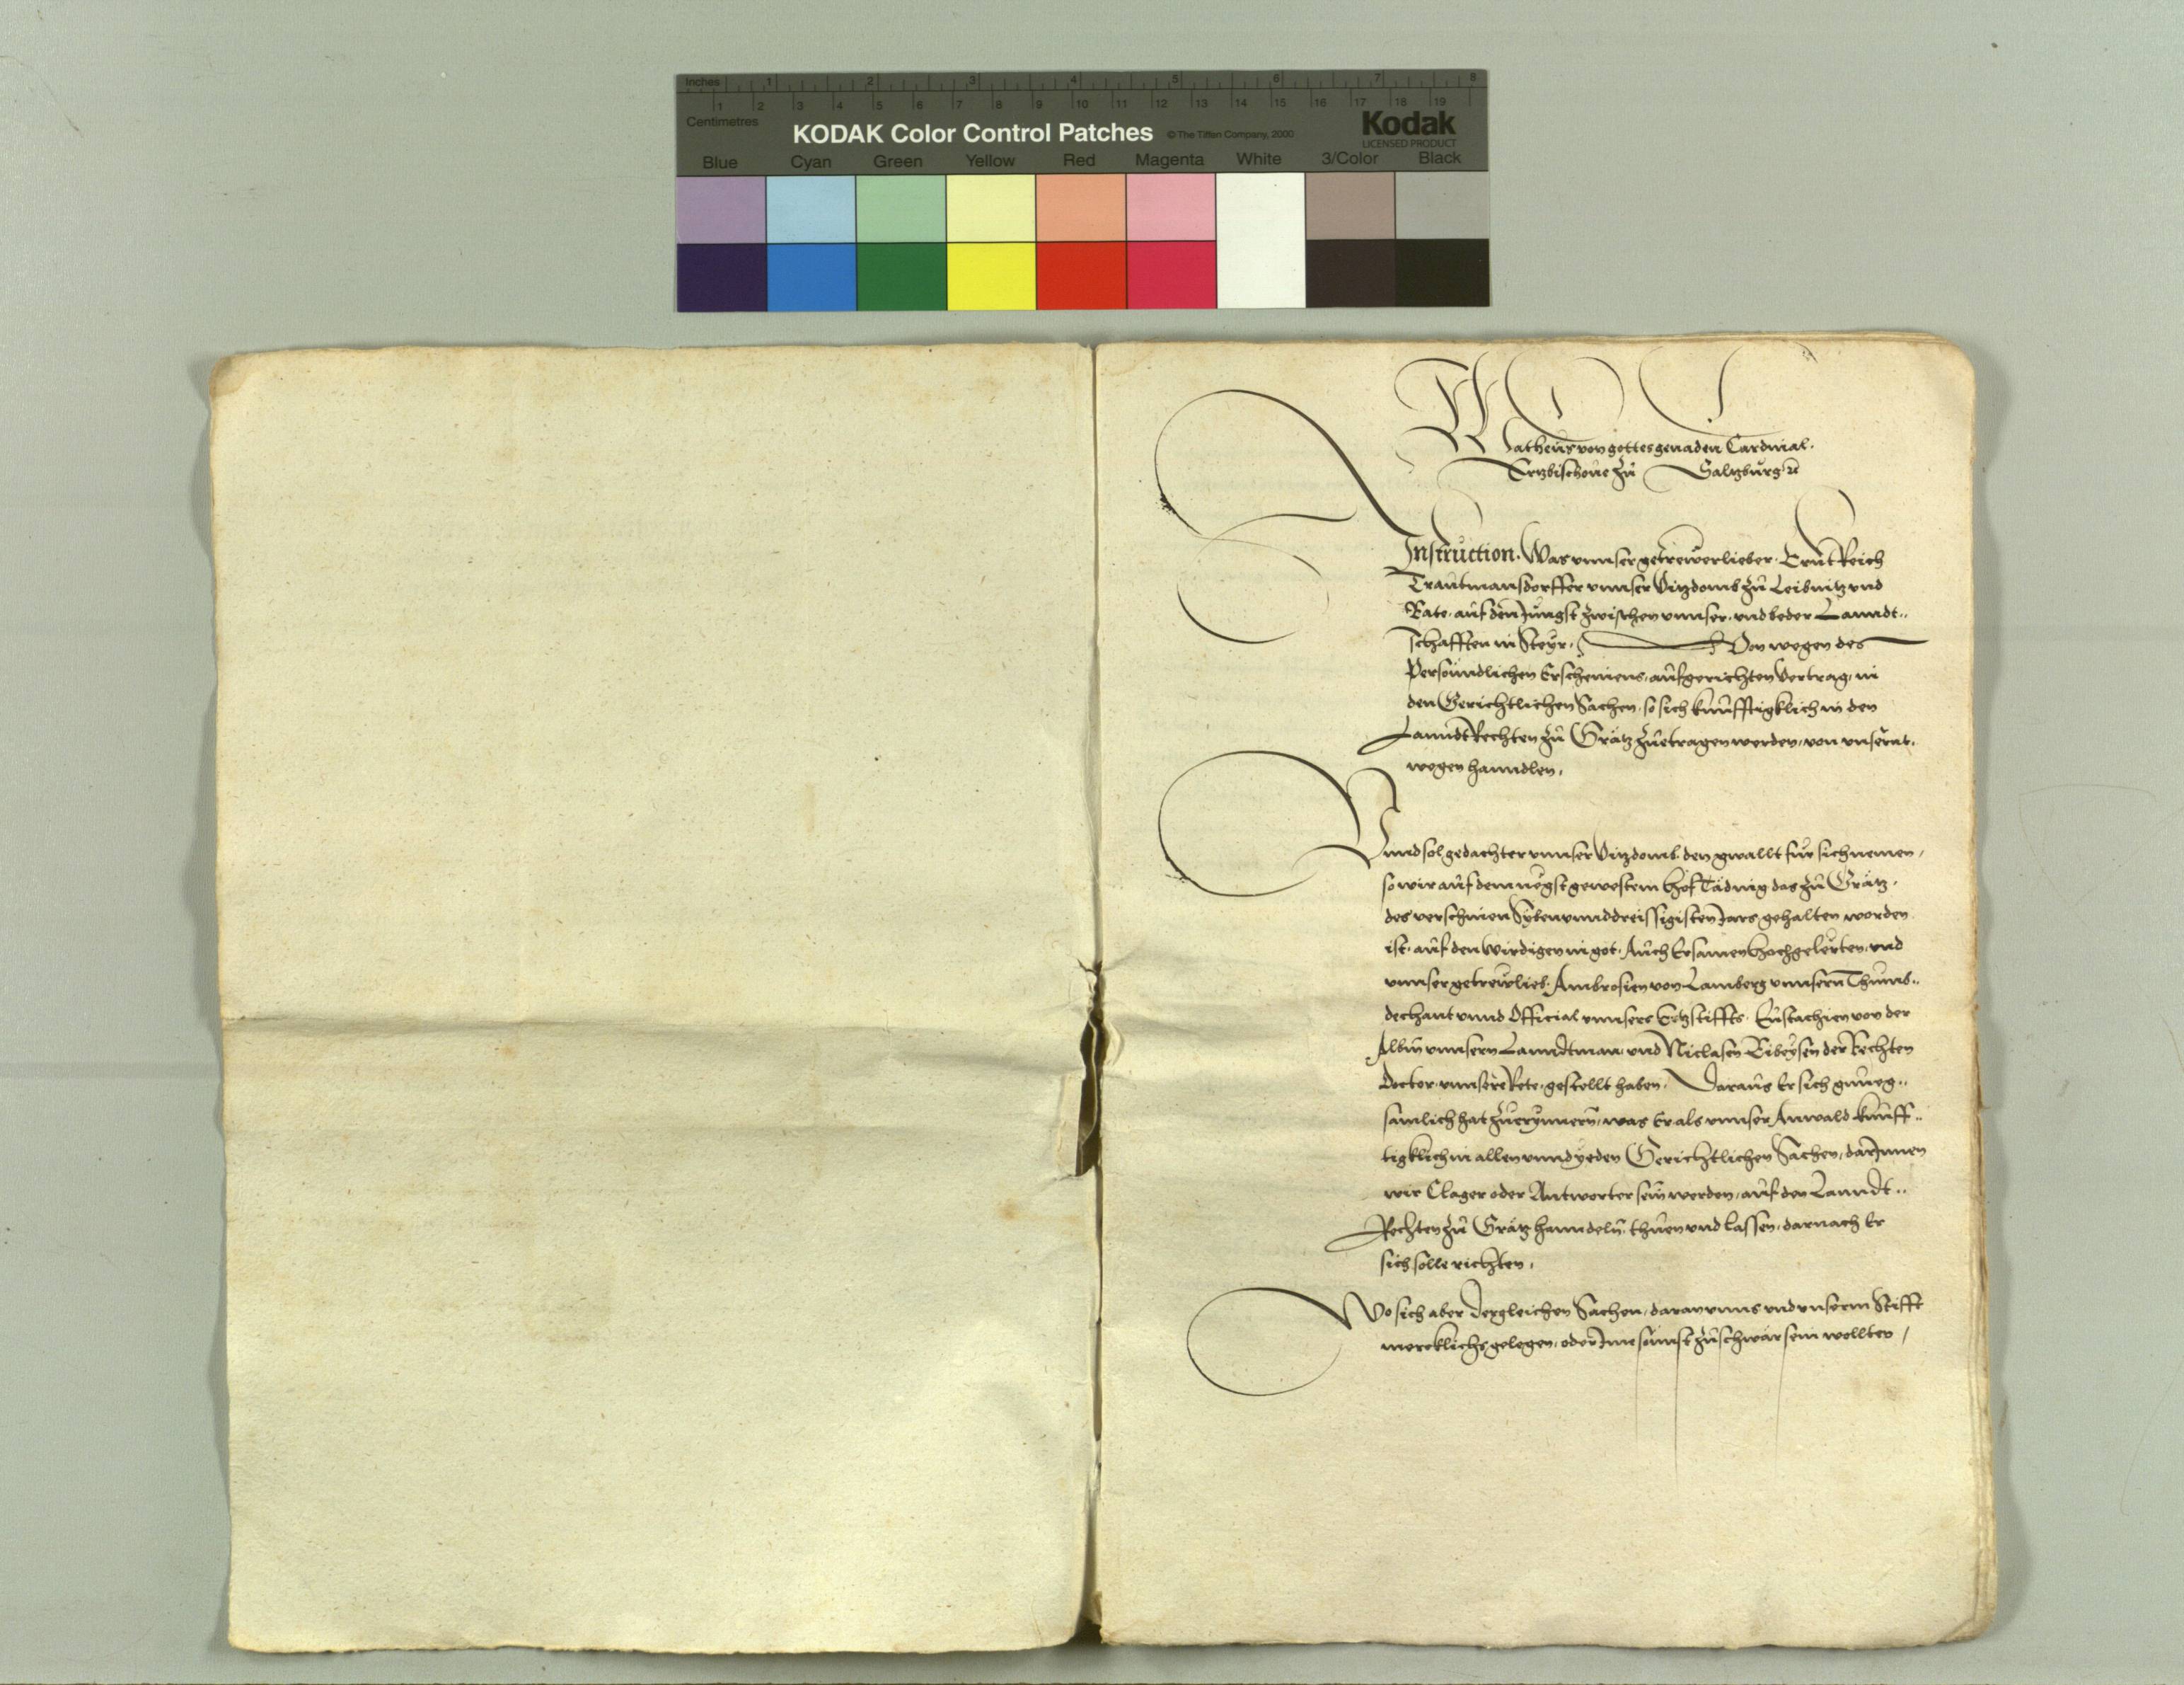 Inches 1 2 3 4 5 6 7 8
1 2 3 4 5 6 7 8 9 10 11 12 13 14 15 16 17 18 19
Centimetres
KODAK Color Control Patches © The Tiffen Company, 2000 Kodak
LICENSED PRODUCT
Blue Cyan Green Yellow Red Magenta White 3/Color Black
Matheus von gottes genaden Cardinal.
Ertzbischove zu Saltzburg
Instruction. Was vnnser getrewer lieber. Ernnt Reich
Trautmansdorffer vnnser Vitzdomb zu Leibnitz vnd
Rate. auf den Jungst zwischen vnnser. vnd beder Lanndt..
schafften in Steyr. Von wegen des
Persönndlichen Erscheinens, aufgerichten Vertrag, in
den Gerichtlichen Sachen, so sich kunfftigklich in den
Lanndt Rechten zu Grätz zuetragen werden, von vnsernt.
wegen hanndlen,
Vnnd sol gedachter vnnser Vitzdomb den gwallt fur sich nemen,
so wir auf dem negst gewestem hof Täding das zu Grätz.
des verschinen Sybenunddreissigisten Jars gehalten worden
ist. auf den wirdigen in got. Auch Ersamen hochgelerten, vnd
vnnser getrew lieb. Ambrosien von Lamberg vnnsern Thumb..
dechant vnnd Official vnnsers Ertzstiffts. Eustachien von der
Albm vnnsern Lanndtman, vnd Niclasen Ribeysen der Rechten
Doctor. vnnsere Rete. gestellt haben. Daraus Er sich gnueg..
samlich hat zuerynnern, was Er als vnnser Anwald kunff..
tigklich in allen vnnd yeden Gerichtlichen Sachen, darJnnen
wir Clager oder Antworter sein werden, auf den Lanndt..
Rechten zu Grätz hanndeln, thuen vnd lassen, darnach Er
sich solle richten,
Wo sich aber dergleichen Sachen, daran vnns vnd vnserm Stifft
mercklichs gelegen, oder Jme sunst zu schwär sein wollten,